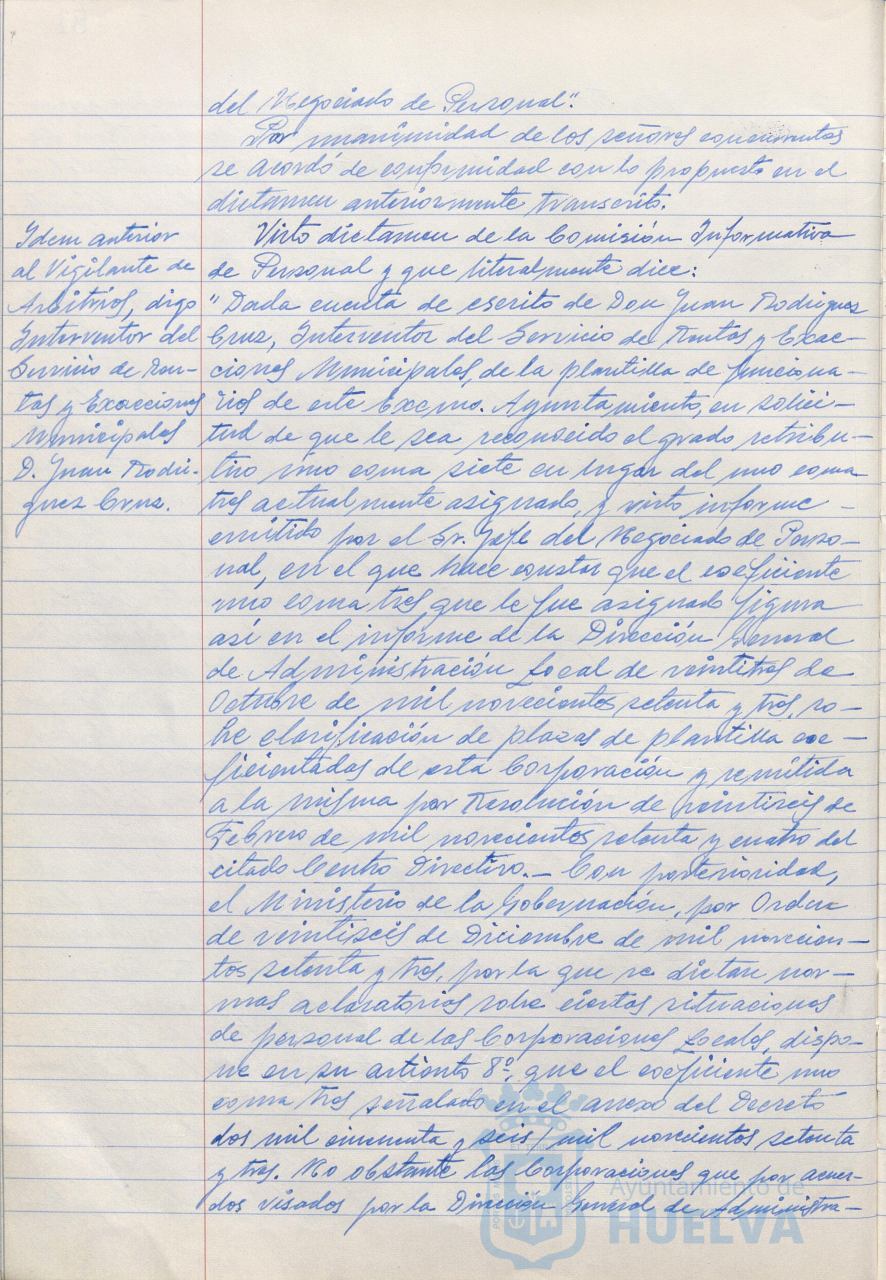 del Negociado de Personal".
Por unanimidad de los señores concurrentes
se acordó de conformidad con lo propuesto en el
dictamen anteriormente transcrito.
Idem anterior
al Vigilante de
Arbitrios, digo
Interventor del
Servicio de Ren-
tas y Exacciones
Municipales
D. Juan Rodri-
guez Cruz.
Visto dictamen de la Comisión Informativa
de Personal y que literalmente dice:
"Dada cuenta de escrito de Don Juan Rodriguez
Cruz, Interventor del Servicio de Rentas y Exac-
ciones Municipales, de la plantilla de funciona-
rios de este Excmo. Ayuntamiento, en solici-
tud de que le sea reconocido el grado retribu-
tivo uno coma siete en lugar del uno coma
tres actualmente asignado, y visto informe
emitido por el Sr. Jefe del Negociado de Perso-
nal, en el que hace constar que el coeficiente
uno coma tres que le fue asignado figura
así en el informe de la Dirección General
de Administración Local de veintitres de
Octubre de mil novecientos setenta y tres, so-
bre clasificación de plazas de plantilla coe-
ficientadas de esta Corporación y remitida
a la misma por Resolución de veintiseis de
Febrero de mil novecientos setenta y cuatro del
citado Centro Directivo.- Con posterioridad,
el Ministerio de la Gobernación, por Orden
de veintiseis de Diciembre de mil novecien-
tos setenta y tres, por la que se dictan nor-
mas aclaratorias sobre ciertas situaciones
de personal de las Corporaciones Locales, dispo-
ne en su artículo 8º, que el coeficiente uno
coma tres señalado en el anexo del Decreto
dos mil cincuenta y seis/mil novecientos setenta
y tres. No obstante las Corporaciones que por acuer-
dos visados por la Dirección General de Administra-
Ayuntamiento de
HUELVA